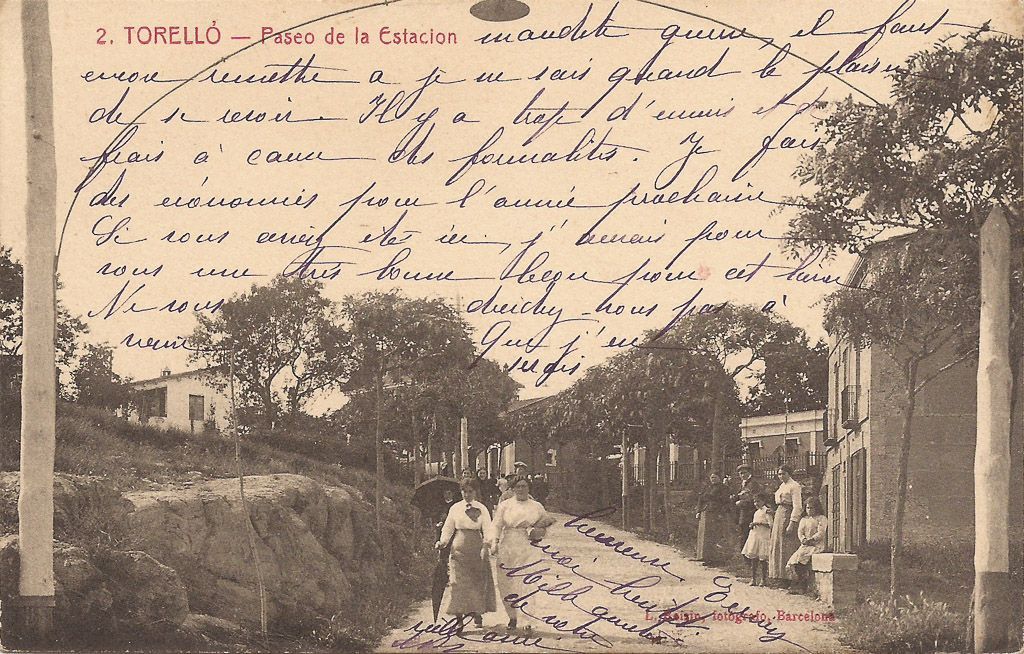 2. TORELLÓ — Paseo de la Estacion
maudite guerre, il faut
encore remettre a je ne sais quand le plaisir
de se revoir. Il y a trop d'ennuis et de
frais à cause des formalités. Je fais
des économies pour l'année prochaine
Si vous aviez été ici, j'aurais pour
vous une très bonne leçon pour cet hiver
Ne vous
nous pas à
venir
Que j'en
serais
heureuse
moi
Mille
de votre
vieille amie
L. Roisin, fotógrafo, Barcelona